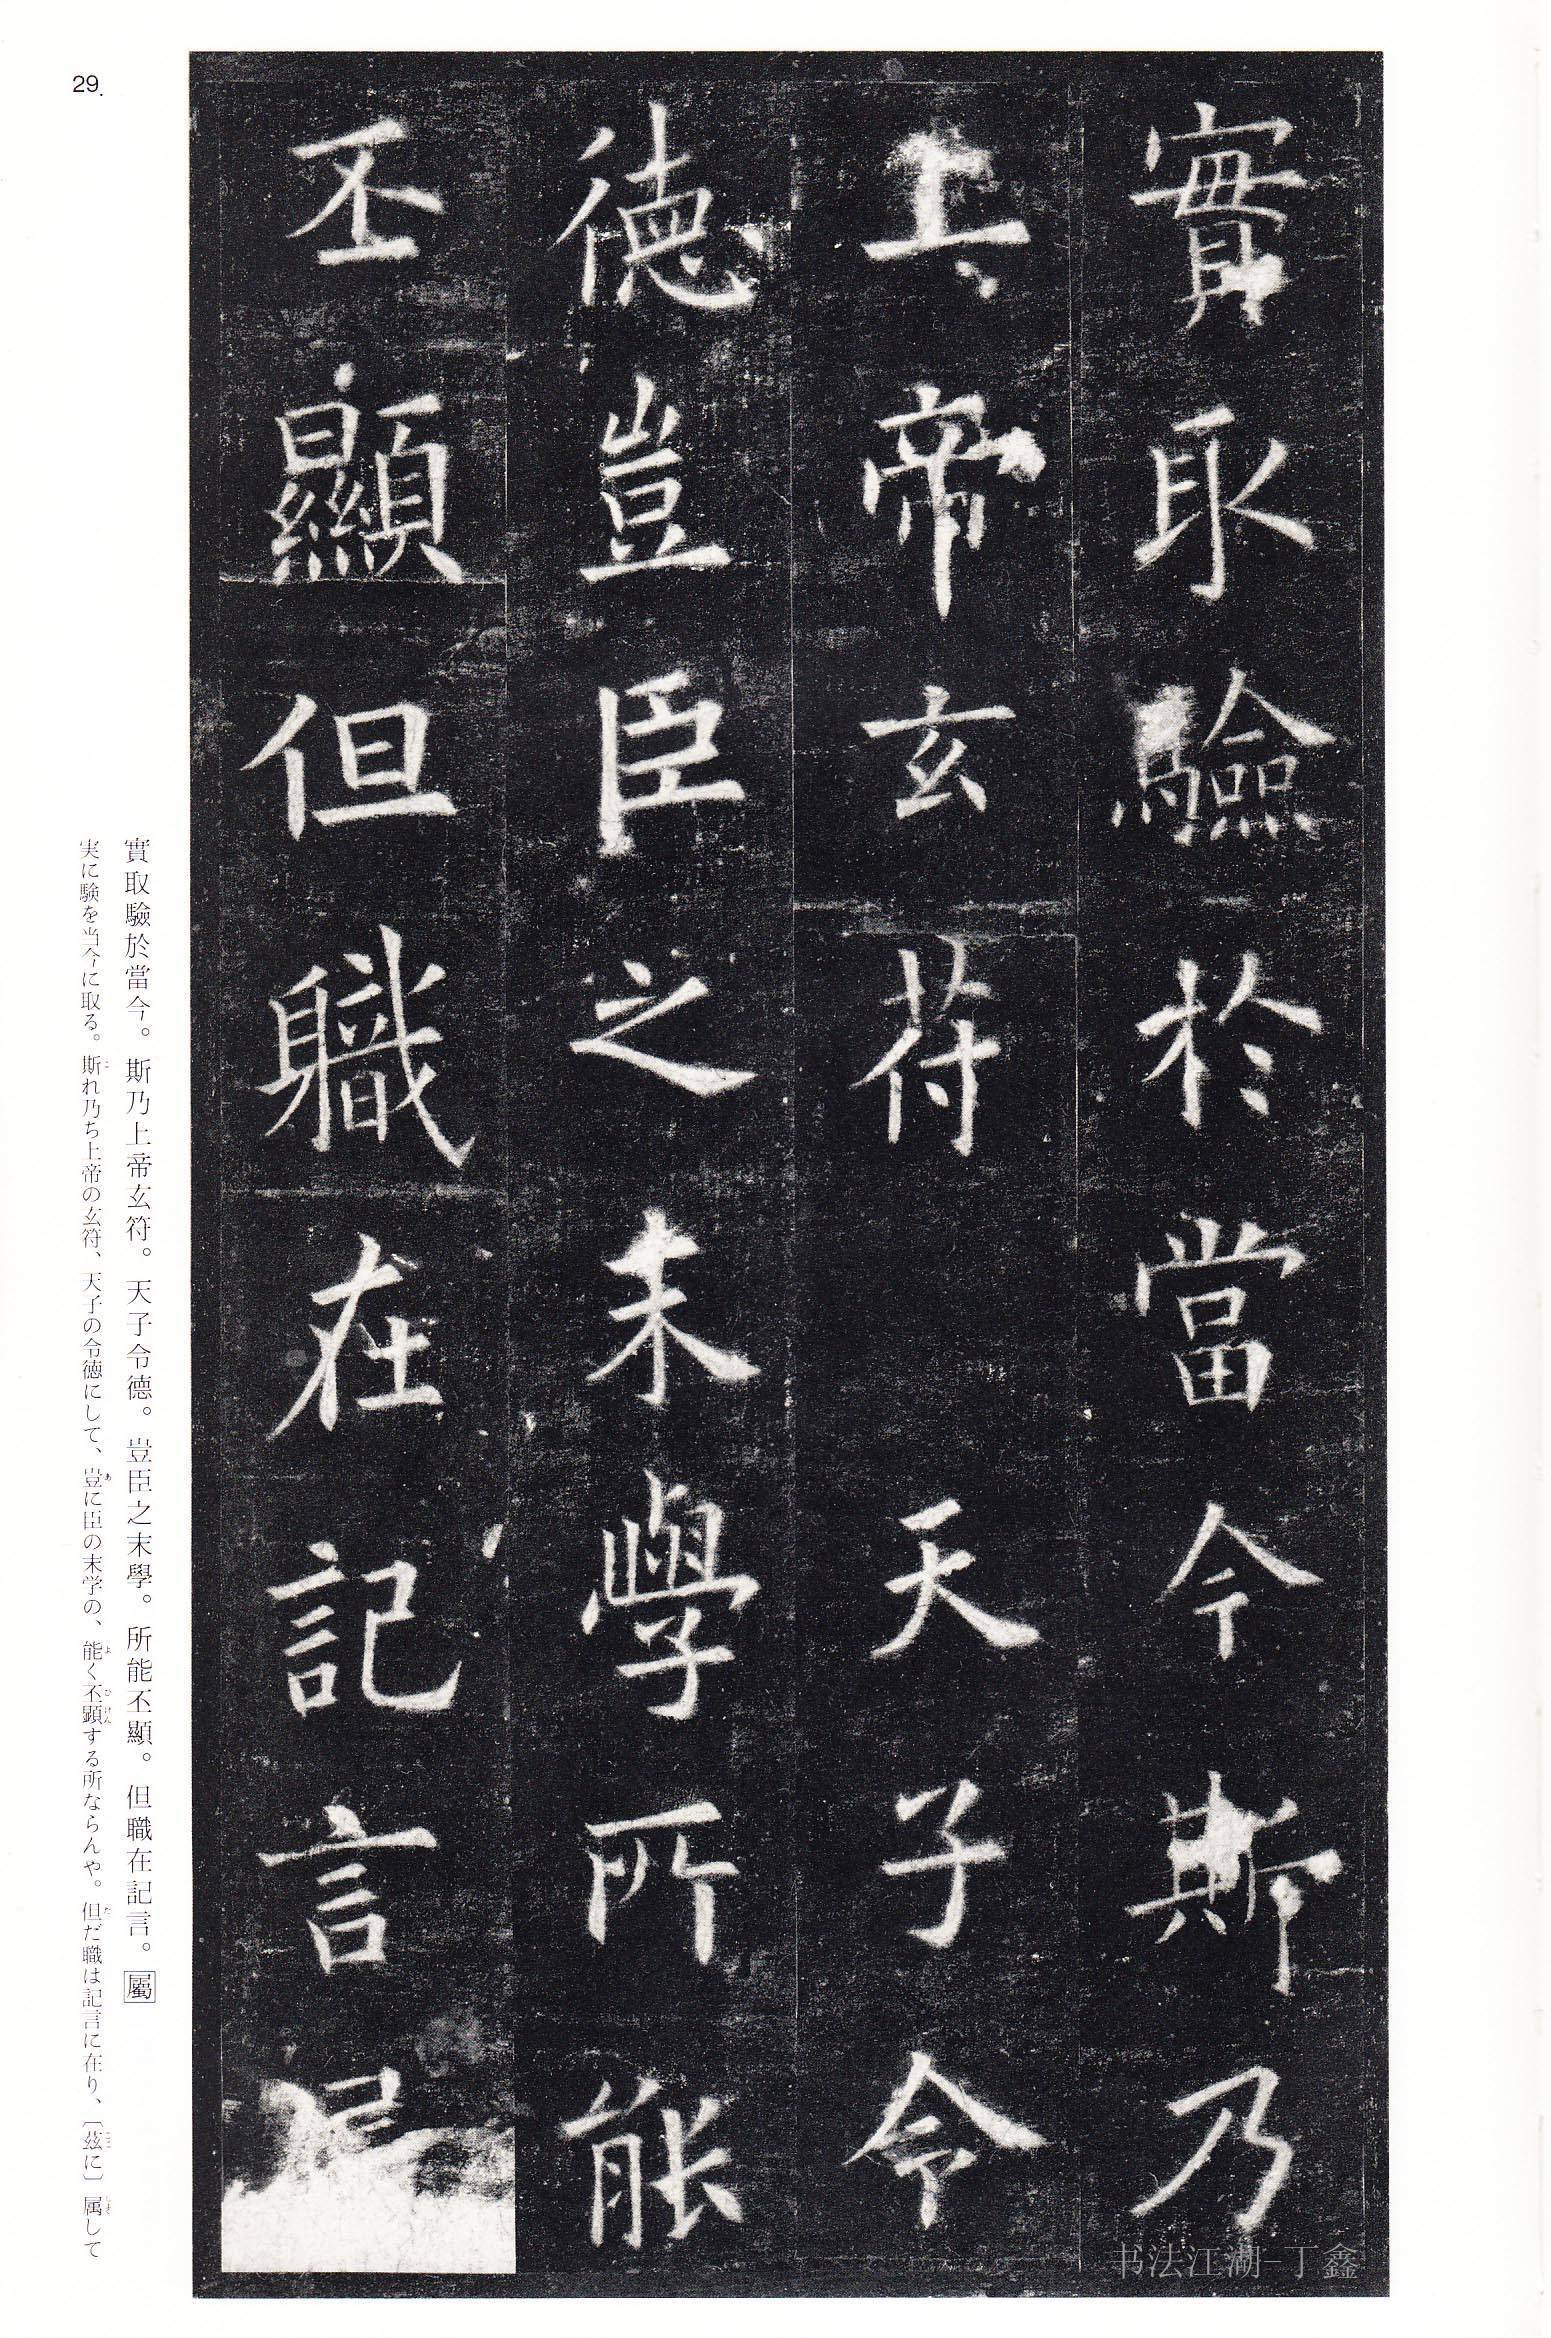 29.
實取驗於當今斯乃
上帝玄符天子令
德豈臣之末學所能
丕顯但職在記言
實取驗於當今。斯乃上帝玄符。天子令德。豈臣之末學。所能丕顯。但職在記言。屬
実に験を当今に取る。斯れ乃ち上帝の玄符、天子の令徳にして、豈に臣の末学の、能く丕顕する所ならんや。但だ職は記言に在り、〔茲に〕属して
书法江湖-丁鑫